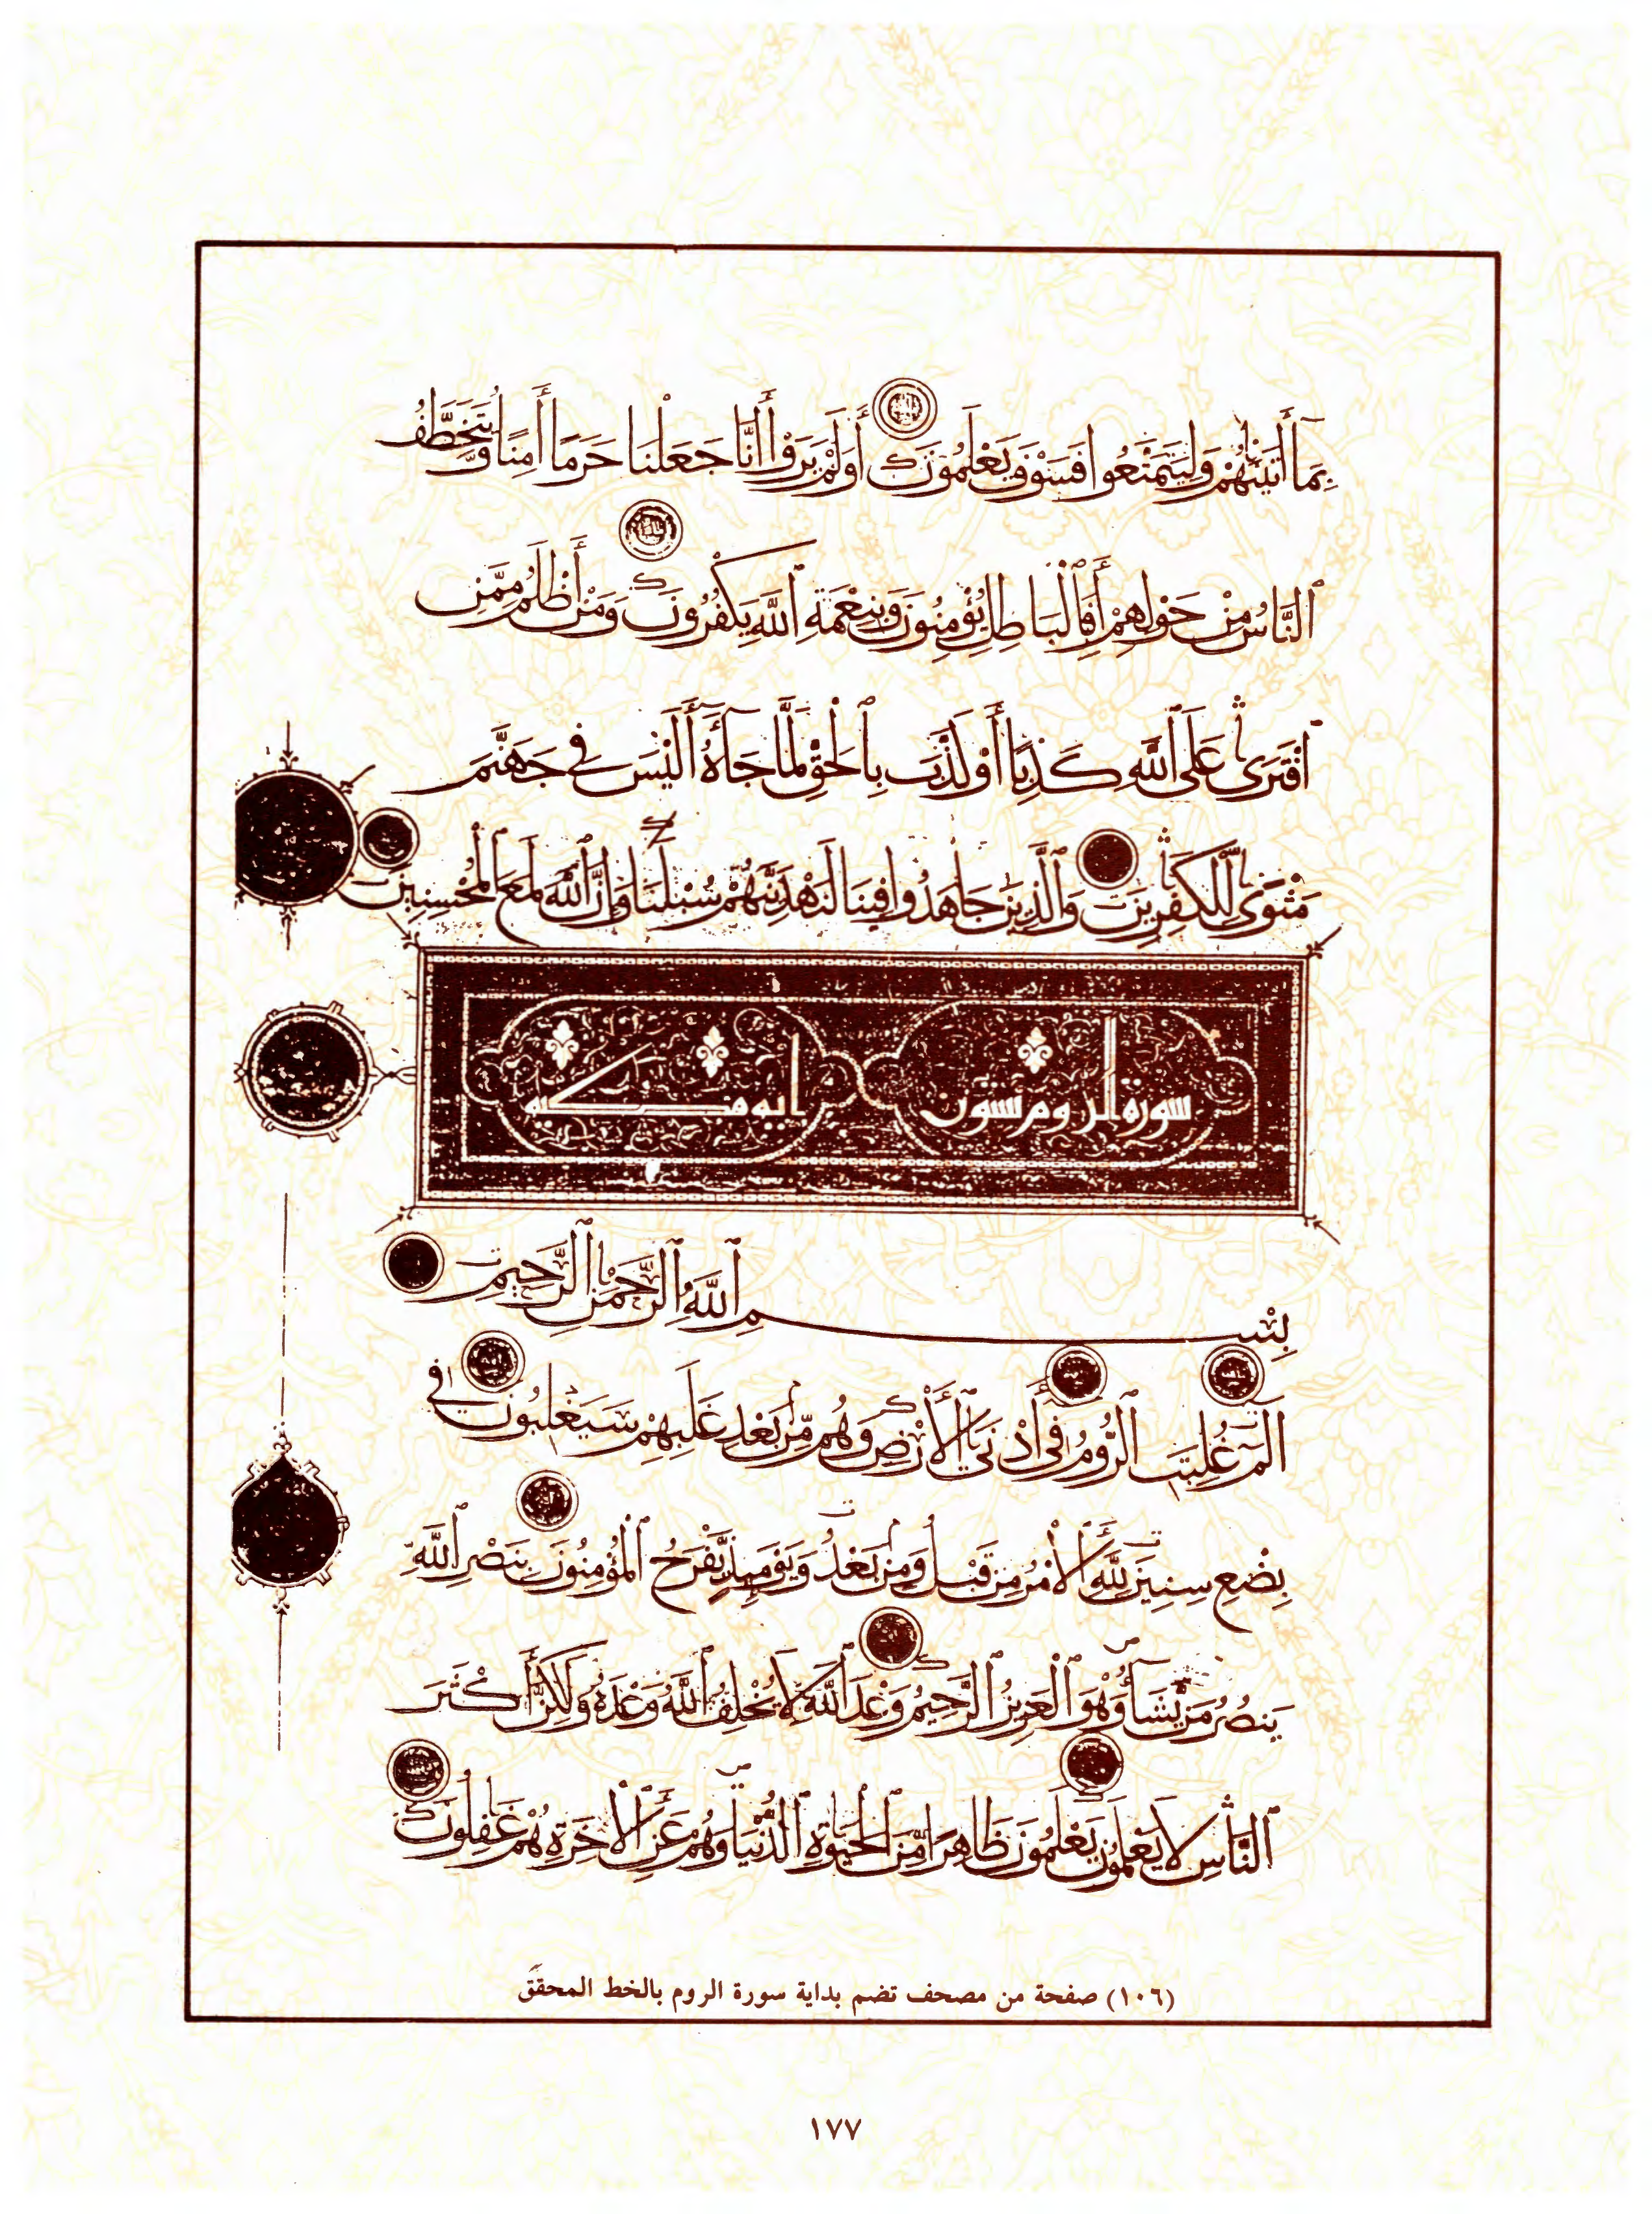 بِمَا أَتَيْنَٰهُمْ وَلِيَتَمَتَّعُوا فَسَوْفَ يَعْلَمُونَ أَوَلَمْ يَرَوْا أَنَّا جَعَلْنَا حَرَمًا أَمِنًا وَيُتَخَطَّفُ
ٱلنَّاسُ مِنْ حَوْلِهِمْ أَفَبِٱلْبَاطِلِ يُؤْمِنُونَ وَبِنِعْمَةِ ٱللَّهِ يَكْفُرُونَ وَمَنْ أَظْلَمُ مِمَّنِ
ٱفْتَرَىٰ عَلَى ٱللَّهِ كَذِبًا أَوْ كَذَّبَ بِٱلْحَقِّ لَمَّا جَآءَهُ أَلَيْسَ فِي جَهَنَّمَ
مَثْوًى لِّلْكَٰفِرِينَ وَٱلَّذِينَ جَاهَدُوا فِينَا لَنَهْدِيَنَّهُمْ سُبُلَنَا وَإِنَّ ٱللَّهَ لَمَعَ ٱلْمُحْسِنِينَ
سورة الروم ستون اية مكية
بِسْمِ ٱللَّهِ ٱلرَّحْمَٰنِ ٱلرَّحِيمِ
الٓمٓ غُلِبَتِ ٱلرُّومُ فِي أَدْنَى ٱلْأَرْضِ وَهُم مِّنْ بَعْدِ غَلَبِهِمْ سَيَغْلِبُونَ فِي
بِضْعِ سِنِينَ لِلَّهِ ٱلْأَمْرُ مِن قَبْلُ وَمِنْ بَعْدُ وَيَوْمَئِذٍ يَّفْرَحُ ٱلْمُؤْمِنُونَ بِنَصْرِ ٱللَّهِ
يَنصُرُ مَن يَّشَآءُ وَهُوَ ٱلْعَزِيزُ ٱلرَّحِيمُ وَعْدَ ٱللَّهِ لَا يُخْلِفُ ٱللَّهُ وَعْدَهُ وَلَٰكِنَّ أَكْثَرَ
ٱلنَّاسِ لَا يَعْلَمُونَ يَعْلَمُونَ ظَاهِرًا مِّنَ ٱلْحَيَوٰةِ ٱلدُّنْيَا وَهُمْ عَنِ ٱلْأَخِرَةِ هُمْ غَٰفِلُونَ
(١٠٦) صفحة من مصحف تضم بداية سورة الروم بالخط المحقق
١٧٧